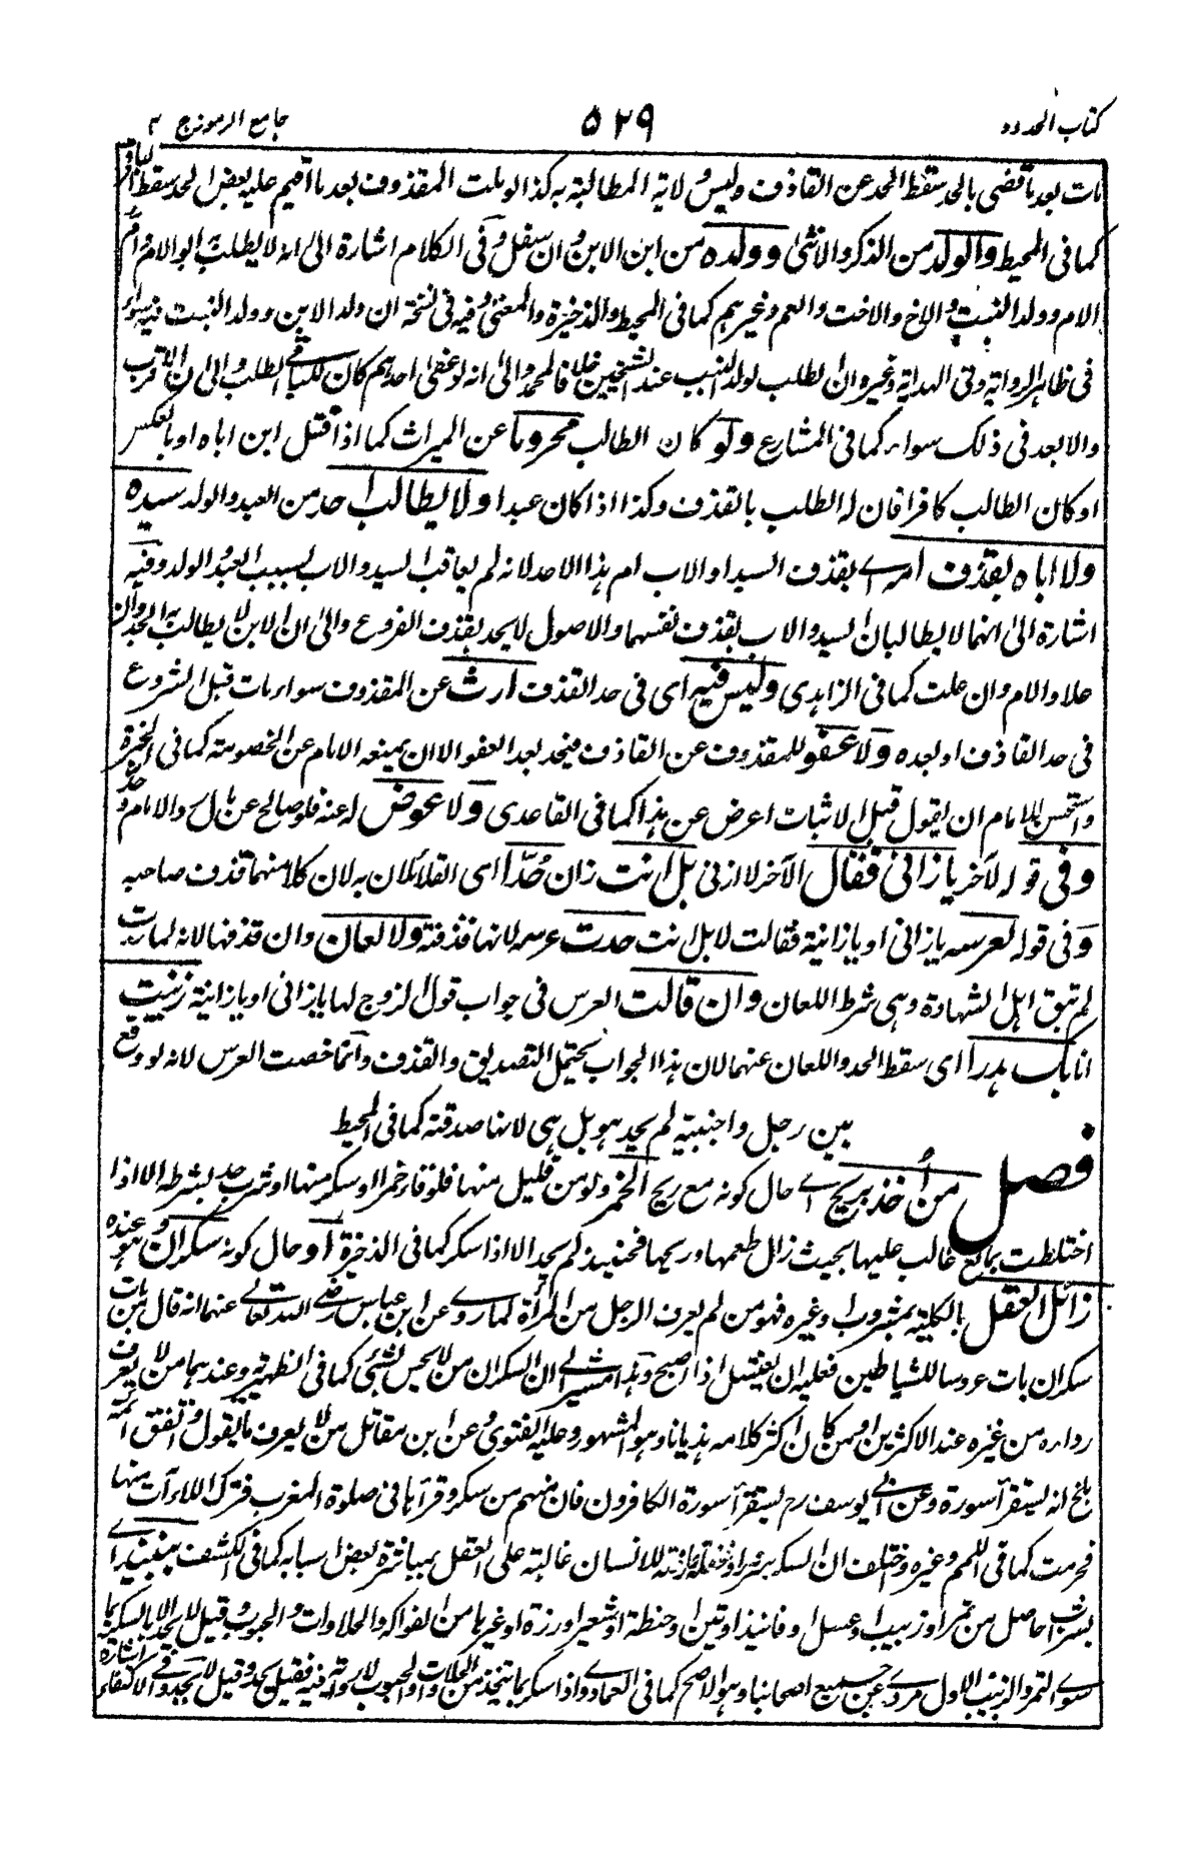 كتاب الحدود
٥٢٩
جامع الرموز ج ٢
مات بعد ما قضى بالحد سقط الحد عن القاذف وليس ولاية المطالبة به كذا لو مات المقذوف بعد ما اقيم عليه بعض الحد سقط الباقي
كما فى المحيط والولد من الذكر والانثى وولده من ابن الابن وان سفل وفى الكلام اشارة الى انه لا يطلب ابو الام وام
الام وولد البنت والاخ والاخت والعم وغيرهم كما فى المحيط والذخيرة والمغنى وفيه فى نسخة ان ولد الابن وولد البنت فيه سواء
فى ظاهر الرواية وفى الهداية وغيره ان الطلب لولد البنت عند الشيخين خلافا لمحمد والى انه لو عفى احدهم كان للباقى الطلب والى ان الاقرب
والابعد فى ذلك سواء كما فى المشارع ولو كان الطالب محروما عن الميراث كما اذا قتل ابن اباه او بالعكس
او كان الطالب كافرا فان له الطلب بالقذف وكذا اذا كان عبدا ولا يطالب احد من العبد والولد سيده
ولا اباه بقذف امه اى بقذف السيد او الاب ام هذا الاحد لانه لم يعاقب السيد والاب بسبب العبد والولد وفيه
اشارة الى انهما لا يطالبان السيد والاب بقذف نفسهما والاصول لا يحد بقذف الفروع والى ان الابن لا يطالب به الجد وان
علا والام وان علت كما فى الزاهدى وليس فيه اى فى حد القذف ارث عن المقذوف سواء مات قبل الشروع
فى حد القاذف او بعده ولا عفو للمقذوف عن القاذف فيحد بعد العفو الا ان يمنعه الامام عن الخصومة كما فى الخيرة
واستحسن للامام ان يقول قبل الاثبات اعرض عن هذا كما فى القاعدى ولا عوض له عنه فلو صالح عن مال رد والامام حد
وفى قوله لآخر يا زانى فقال الآخر لا ازنى بل انت زان حدا اى القائلان به لان كلا منهما قذف صاحبه
وفى قوله لعرسه يا زانى او يا زانية فقالت لا بل انت حدت عرسه لانها قذفته ولا لعان وان قذفها لانه لما حدت
لم تبق اهل الشهادة وهى شرط اللعان وان قالت العرس فى جواب قول الزوج لها يا زانى او يا زانية زنيت
انا بك هدرا اى سقط الحد واللعان عنهما لان هذا الجواب يحتمل التصديق والقذف وانما خصت العرس لانه لو وقع
بين رجل واجنبية لم يحد هو بل هى لانها صدقته كما فى المحيط
فصل من اخذ بريح اى حال كونه مع ريح الخمر ولو من قليل منها فلو قاء خمرا او سكر منها او شرب حد بشرطه الا اذا
اختلطت بمائع غالب عليها بحيث زال طعمها وريحها فحينئذ لم يحد الا اذا سكر كما فى الذخيرة او حال كونه سكران وهو عنده
زائل العقل بالكلية بمشروب او غيره فهو من لم يعرف الرجل من المرأة لما روى عن ابن عباس رضى الله تعالى عنهما انه قال من بات
سكران بات عروسا للشياطين فعليه ان يغتسل اذا اصبح وهذا مشير الى ان السكران من لا يحس بشئ كما فى الظهيرية وعندهما من لا يعرف
رداءه من غيره عند الاكثرين او من كان اكثر كلامه هذيانا وهو المشهور وعليه الفتوى وعن ابن مقاتل من لا يعرف ما يقول واتفق ائمة
بلخ انه يستقرأ سورة وعن ابى يوسف رح يستقرأ سورة الكافرون فان منهم من سكر وقرأها فى صلوة المغرب فترك اللاءآت منها
فحرمت كما فى اللمم وغيره واختلف ان السكر سرور او غفلة عارضة للانسان غالبة على العقل بمباشرة بعض اسبابه كما فى الكشف بنبيذ اى
بشراب حاصل من تمر او زبيب او عسل او فانيذ او تين او حنطة او شعير او رزة او غيرها من الفواكه والحلاوات والحبوب وقيل لا يحد الا بالسكر بما
سوى التمر والزبيب الاول مروى عن جميع اصحابنا وهو الاصح كما فى العمادى واذا سكر بما يتخذ من الحلاوات والحبوب لا رواية فيه فقيل يحد وقيل لا يحد وفى الاكتفاء اشارة